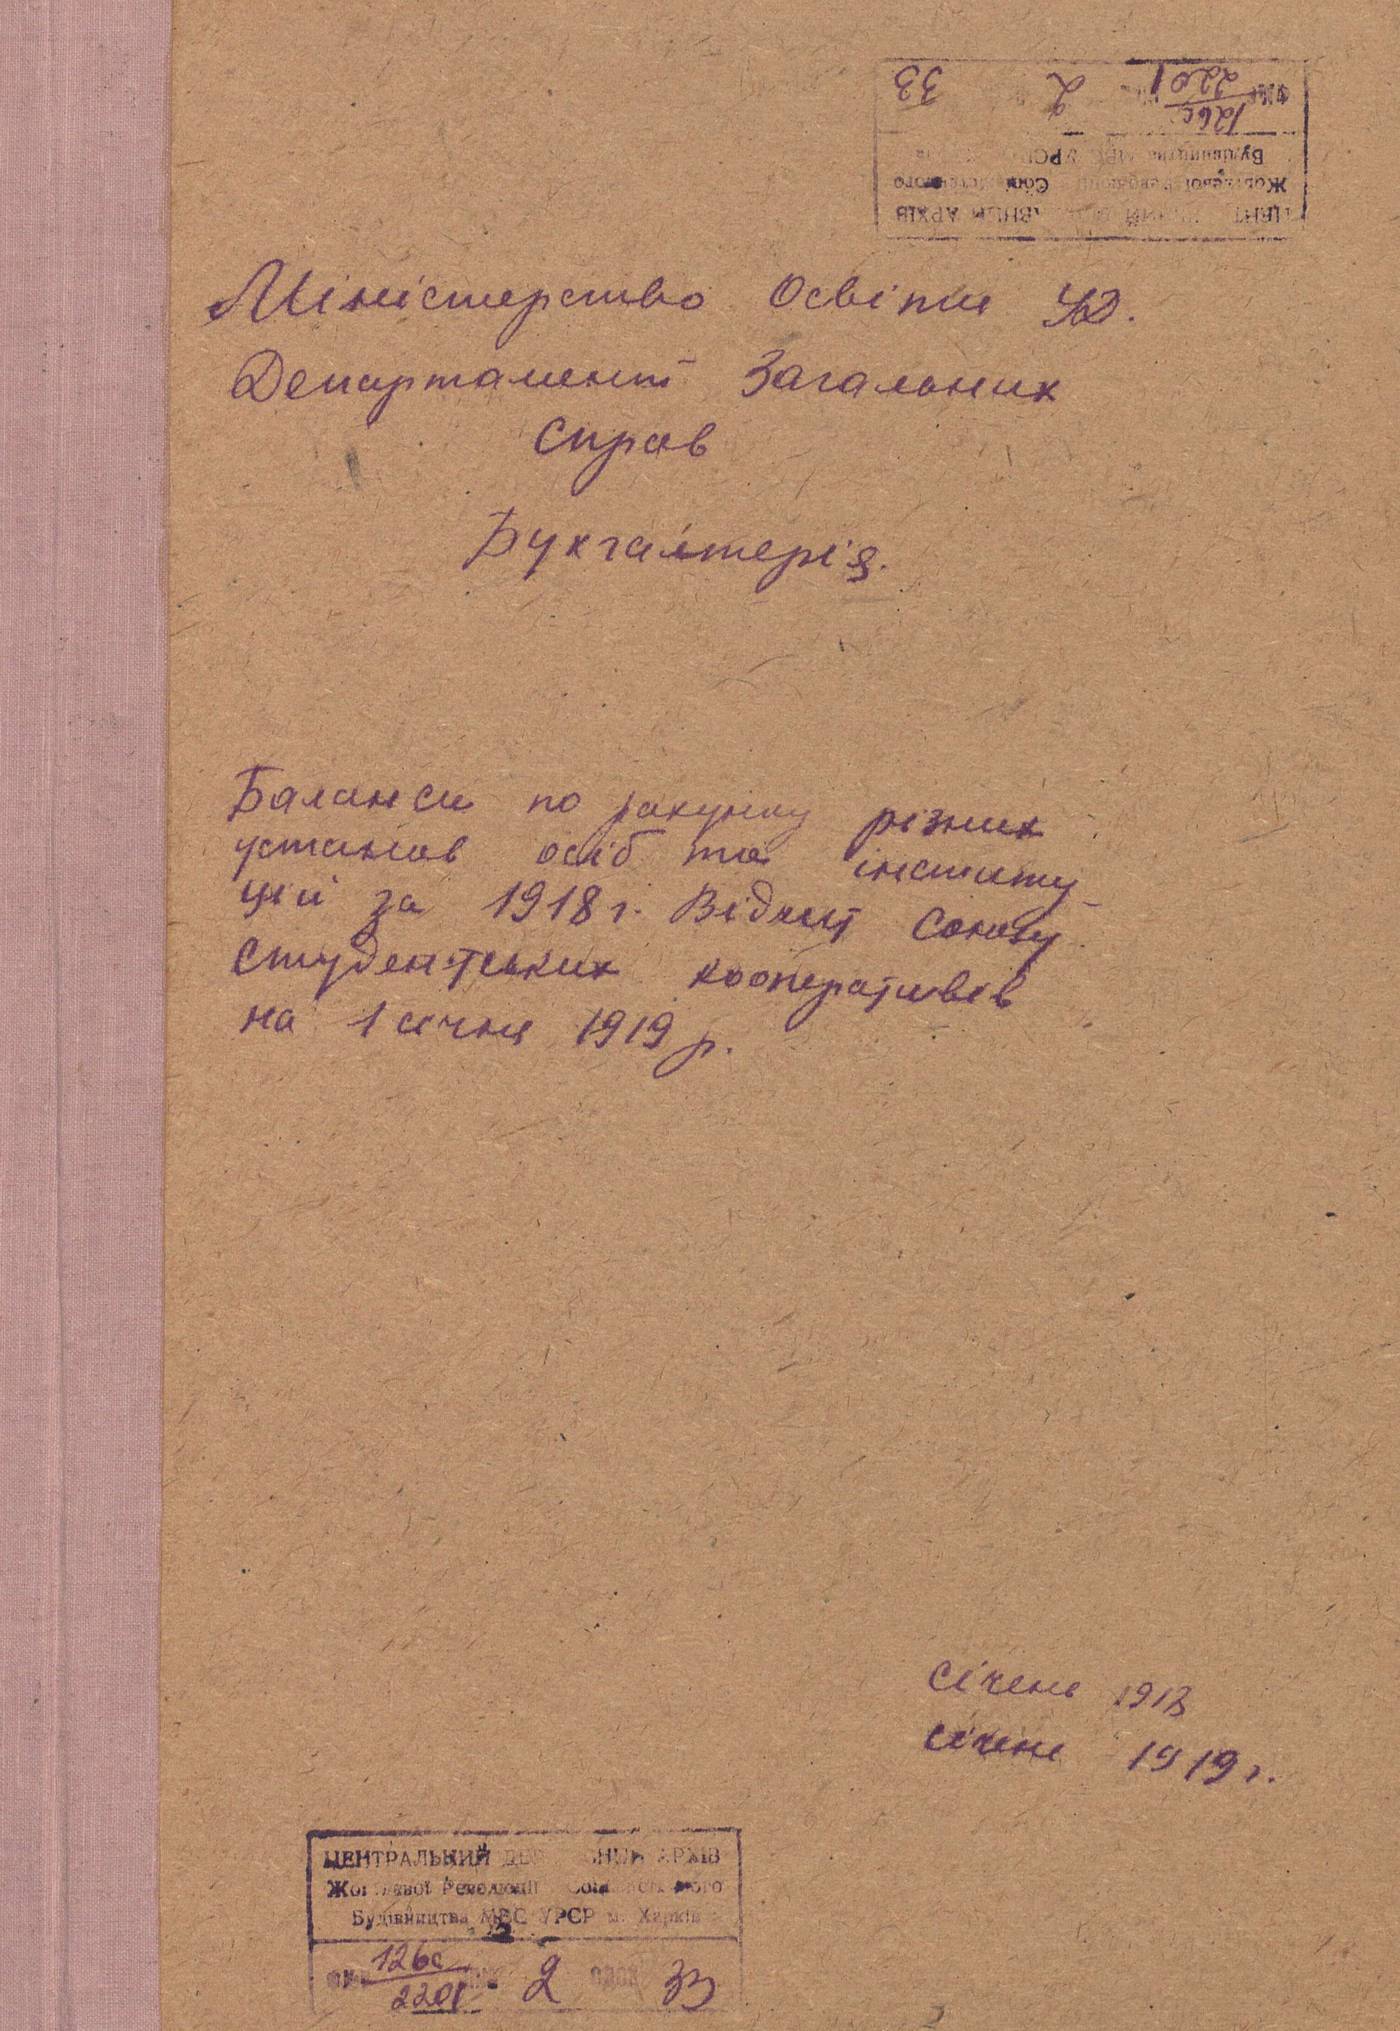 ЦЕНТРАЛЬНИЙ ДЕРЖАВНИЙ АРХІВ
Жовтневої Революції і Соціалістичного
Будівництва МВС УРСР
126с
2201
2
33
Міністерство Освіти УД.
Департамент Загальних
справ
Бухгалтерія.
Баланси по рахунку різних
установ осіб та інститу
цій за 1918 г. Відчит Союзу
студентських кооперативів
на 1 січня 1919 р.
Січень 1918
січень 1919 г.
ЦЕНТРАЛЬНИЙ ДЕРЖАВНИЙ АРХІВ
Жовтневої Революції і Соціалістичного
Будівництва МВС УРСР м. Харків
126с
2201
2
33